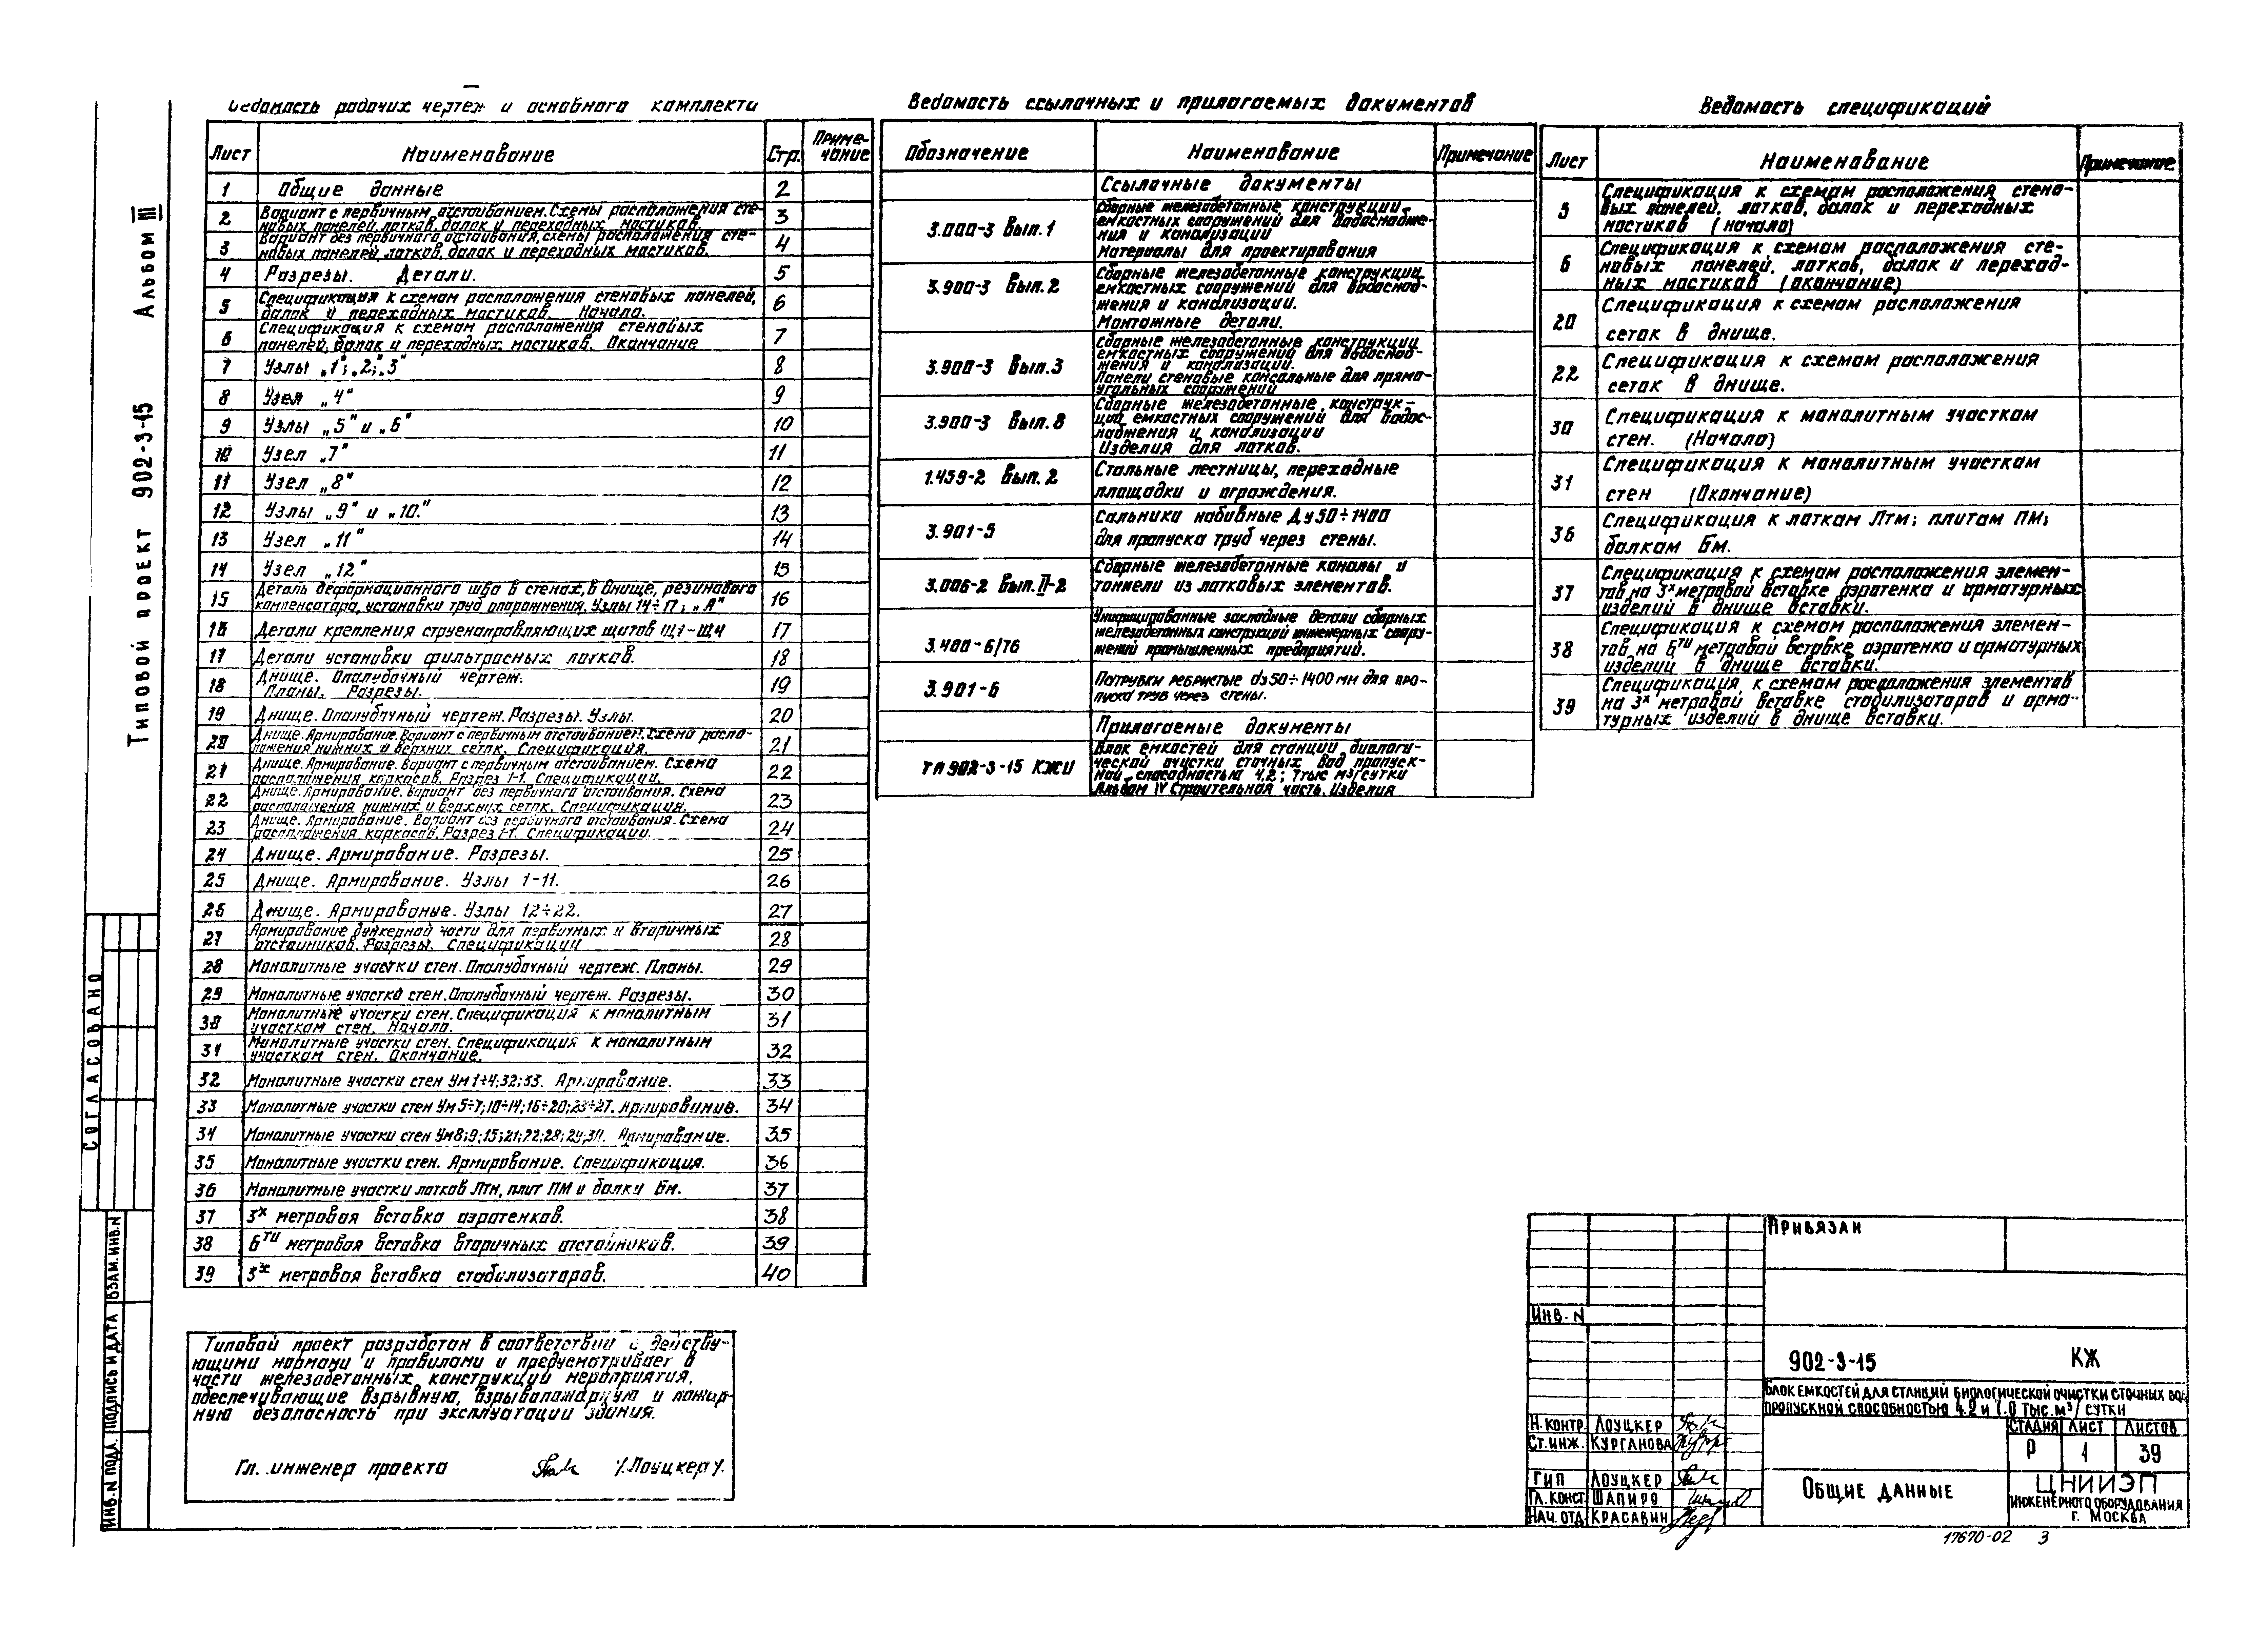 Типовой проект 902-3-15 Альбом III
Ведомость рабочих чертеж и основного комплекта
Лист Наименование Стр. Приме-
чание
1 Общие данные 2
2 Вариант с первичным отстаиванием. Схемы расположения сте-
новых панелей, лотков, балок и переходных мостиков. 3
3 Вариант без первичного отстаивания, схемы расположения сте-
новых панелей, лотков, балок и переходных мостиков. 4
4 Разрезы. Детали. 5
5 Спецификация к схемам расположения стеновых панелей,
балок и переходных мостиков. Начало. 6
6 Спецификация к схемам расположения стеновых
панелей, балок и переходных мостиков. Окончание 7
7 Узлы „1"; „2"; „3" 8
8 Узел „4" 9
9 Узлы „5" и „6" 10
10 Узел „7" 11
11 Узел „8" 12
12 Узлы „9" и „10." 13
13 Узел „11" 14
14 Узел „12" 15
15 Деталь деформационного шва в стенах, в днище, резинового
компенсатора, установки труб опорожнения. Узлы 14÷17; „А" 16
16 Детали крепления струенаправляющих щитов Щ1-Щ4 17
17 Детали установки фильтросных лотков. 18
18 Днище. Опалубочный чертеж.
Планы. Разрезы. 19
19 Днище. Опалубочный чертеж. Разрезы. Узлы. 20
20 Днище. Армирование. Вариант с первичным отстаиванием. Схема распо-
ложения нижних и верхних сеток. Спецификация. 21
21 Днище. Армирование. Вариант с первичным отстаиванием. Схема
расположения каркасов. Разрез 1-1. Спецификации. 22
22 Днище. Армирование. Вариант без первичного отстаивания. Схема
расположения нижних и верхних сеток. Спецификация. 23
23 Днище. Армирование. Вариант без первичного отстаивания. Схема
расположения каркасов. Разрез 1-1. Спецификации. 24
24 Днище. Армирование. Разрезы. 25
25 Днище. Армирование. Узлы 1-11. 26
26 Днище. Армирование. Узлы 12÷22. 27
27 Армирование бункерной части для первичных и вторичных
отстойников. Разрезы. Спецификации 28
28 Монолитные участки стен. Опалубочный чертеж. Планы. 29
29 Монолитные участка стен. Опалубочный чертеж. Разрезы. 30
30 Монолитные участки стен. Спецификация к монолитным
участкам стен. Начало. 31
31 Монолитные участки стен. Спецификация к монолитным
участкам стен. Окончание. 32
32 Монолитные участки стен Ум1÷4; 32; 33. Армирование. 33
33 Монолитные участки стен Ум5÷7; 10÷14; 16÷20; 23÷27. Армирование. 34
34 Монолитные участки стен Армирование. 35
35 Монолитные участки стен. Армирование. Спецификация. 36
36 Монолитные участки лотков Лтм, плит ПМ и балки Бм. 37
37 3х метровая вставка аэротенков. 38
38 6ти метровая вставка вторичных отстойников. 39
39 3х метровая вставка стабилизаторов. 40
Типовой проект разработан в соответствии с действу-
ющими нормами и правилами и предусматривает в
части железобетонных конструкций мероприятия,
обеспечивающие взрывную, взрывопожарную и пожар-
ную безопасность при эксплуатации здания.
Гл. инженер проекта /Лоуцкер/.
Ведомость ссылочных и прилагаемых документов
Обозначение Наименование Примечание
Ссылочные документы
3.000-3 Вып. 1 Сборные железобетонные конструкции
емкостных сооружений для водоснабже-
ния и канализации
Материалы для проектирования
3.900-3 Вып. 2 Сборные железобетонные конструкции
емкостных сооружений для водоснаб-
жения и канализации.
Монтажные детали.
3.900-3 Вып. 3 Сборные железобетонные конструкции
емкостных сооружений для водоснаб-
жения и канализации.
Панели стеновые консольные для прямо-
угольных сооружений
3.900-3 Вып. 8 Сборные железобетонные конструк-
ций емкостных сооружений для водос-
набжения и канализации
Изделия для лотков.
1.459-2 Вып. 2 Стальные лестницы, переходные
площадки и ограждения.
3.901-5 Сальники набивные Ду50÷1400
для пропуска труб через стены.
3.006-2 Вып. II-2 Сборные железобетонные каналы и
тоннели из лотковых элементов.
3.400-6/76 Унифицированные закладные детали сборных
железобетонных конструкций инженерных соору-
жений промышленных предприятий.
3.901-6 Патрубки ребристые dу50÷1400 мм для про-
пуска труб через стены.
Прилагаемые документы
ТП 902-3-15 КЖИ Блок емкостей для станции биологи-
ческой очистки сточных вод пропуск-
ной способностью 4,2; 7 тыс м3/сутки
Альбом IV Строительная часть. Изделия
Ведомость спецификаций
Лист Наименование Примечание
5 Спецификация к схемам расположения стено-
вых панелей, лотков, балок и переходных
мостиков (начало)
6 Спецификация к схемам расположения сте-
новых панелей, лотков, балок и переход-
ных мостиков (окончание)
20 Спецификация к схемам расположения
сеток в днище.
22 Спецификация к схемам расположения
сеток в днище.
30 Спецификация к монолитным участкам
стен. (Начало)
31 Спецификация к монолитным участкам
стен (Окончание)
36 Спецификация к лоткам Лтм; плитам ПМ;
балкам Бм.
37 Спецификация к схемам расположения элемен-
тов на 3х метровой вставке аэротенка и арматурных
изделий в днище вставки.
38 Спецификация к схемам расположения элемен-
тов на 6ти метровой вставке аэротенка и арматурных
изделий в днище вставки.
39 Спецификация к схемам расположения элементов
на 3х метровой вставке стабилизаторов и арма-
турных изделий в днище вставки.
Привязан
Инв. N
902-3-15 КЖ
Блок емкостей для станций биологической очистки сточных вод
пропускной способностью 4.2 и 7.0 тыс. м³/сутки
Стадия Лист Листов
Р 1 39
Н. контр. Лоуцкер
Ст. инж. Курганова
ГИП Лоуцкер
Гл. конст. Шапиро
Нач. отд. Красавин
Общие данные
ЦНИИЭП
инженерного оборудования
г. Москва
17670-02 3
Согласовано
Инв. N подл. Подпись и дата Взам. инв. N